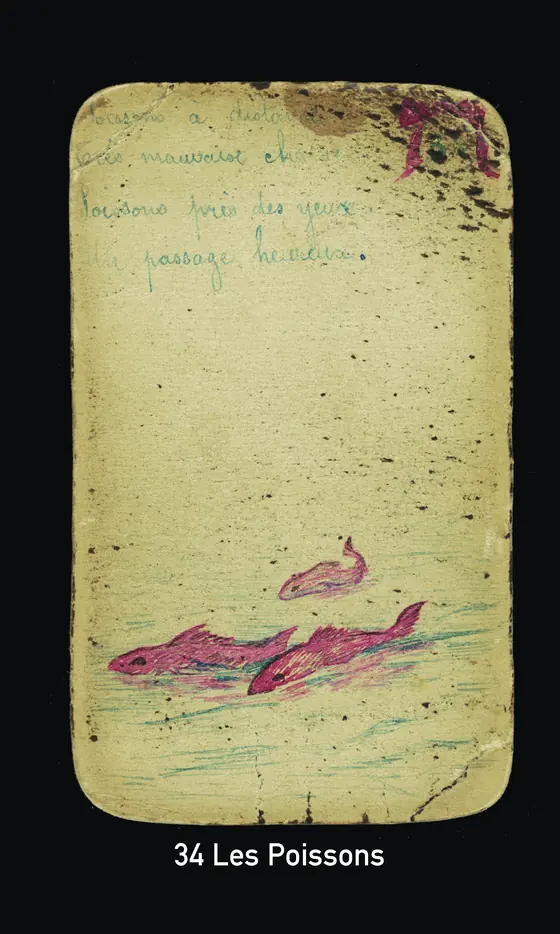 Poissons a
très mauvaise
Poissons près des yeux
passage heureux.
34 Les Poissons